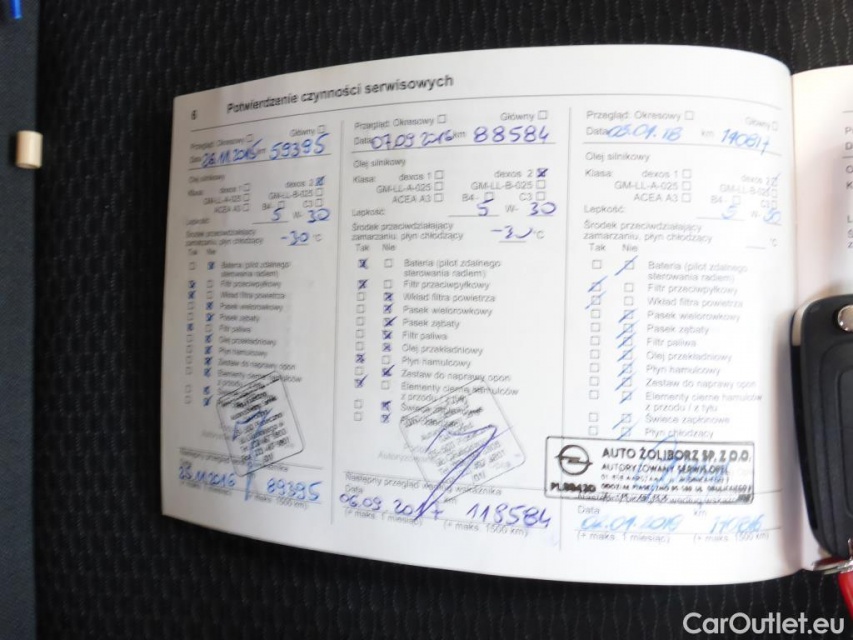 6 Potwierdzenie czynności serwisowych
Przegląd: Okresowy Główny
Data 26.11.2015 km 59395
Olej silnikowy
Klasa: dexos 1 dexos 2
GM-LL-A-025 GM-LL-B-025
ACEA A3 B4 C3
Lepkość: 5 W- 30
Środek przeciwdziałający
zamarzaniu, płyn chłodzący -30 °C
Tak Nie
Bateria (pilot zdalnego
sterowania radiem)
Filtr przeciwpyłkowy
Wkład filtra powietrza
Pasek wielorowkowy
Pasek zębaty
Filtr paliwa
Olej przekładniowy
Płyn hamulcowy
Zestaw do naprawy opon
Elementy cierne hamulców
z przodu
25.11.2016 89395
(+ maks. 1500 km)
Przegląd: Okresowy Główny
Data 07.09.2016 km 88584
Olej silnikowy
Klasa: dexos 1 dexos 2
GM-LL-A-025 GM-LL-B-025
ACEA A3 B4 C3
Lepkość: 5 W- 30
Środek przeciwdziałający
zamarzaniu, płyn chłodzący -30 °C
Tak Nie
Bateria (pilot zdalnego
sterowania radiem)
Filtr przeciwpyłkowy
Wkład filtra powietrza
Pasek wielorowkowy
Pasek zębaty
Filtr paliwa
Olej przekładniowy
Płyn hamulcowy
Zestaw do naprawy opon
Elementy cierne hamulców
z przodu / z tyłu
Świece zapłonowe
Następny przegląd według wskaźnika
Data km
06.09.2017 118584
(+ maks. 1 miesiąc) (+ maks. 1500 km)
Przegląd: Okresowy Główny
Data 05.01.18 km
Olej silnikowy
Klasa: dexos 1 dexos 2
GM-LL-A-025 GM-LL-B-025
ACEA A3 B4 C3
Lepkość: 5 W- 30
Środek przeciwdziałający
zamarzaniu, płyn chłodzący °C
Tak Nie
Bateria (pilot zdalnego
sterowania radiem)
Filtr przeciwpyłkowy
Wkład filtra powietrza
Pasek wielorowkowy
Pasek zębaty
Filtr paliwa
Olej przekładniowy
Płyn hamulcowy
Zestaw do naprawy opon
Elementy cierne hamulców
z przodu / z tyłu
Świece zapłonowe
Płyn chłodzący
AUTO ŻOLIBORZ SP. Z O.O.
AUTORYZOWANY SERWIS OPEL
Data km
(+ maks. 1 miesiąc) (+ maks. 1500 km)
CarOutlet.eu